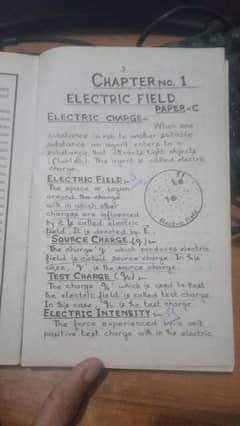 3
CHAPTER NO. 1
ELECTRIC FIELD
PAPER-C
ELECTRIC CHARGE-
When one
substance is rub to another suitable
substance an agent enters to a
substance that attracts light objects
This agent is called electric
charge.
ELECTRIC FIELD:-
The space or region
around the charge
with in which other
charges are influenced
by it is called electric
field. It is denoted by E.
Electric Field
SOURCE CHARGE (q):-
The charge q which produces electric
field is called source charge. In this
case, q is the source charge.
TEST CHARGE (q₀):-
The charge q₀ which is used to test
the electric field is called test charge.
In this case, q₀ is the test charge.
ELECTRIC INTENSITY:-
The force experienced by a unit
positive test charge with in the electric